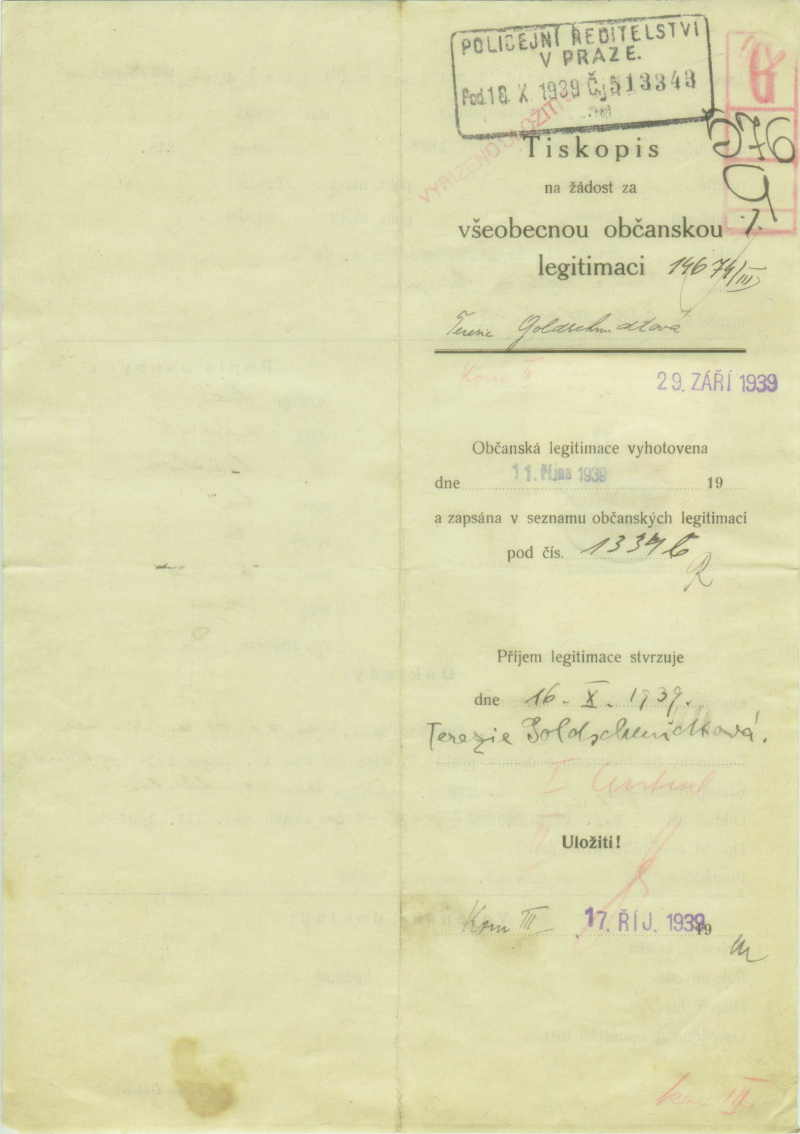 POLICEJNÍ ŘEDITELSTVÍ
V PRAZE.
Pod. 18. X. 1939 Čj. 513343
Tiskopis
na žádost za
všeobecnou občanskou
legitimaci 14674/III
576
9
29. ZÁŘÍ 1939
Kom II
Občanská legitimace vyhotovena
dne 11. října 1939 19
a zapsána v seznamu občanských legitimací
pod čís. 13376
Příjem legitimace stvrzuje
dne 16. X. 1939.
Terezie Goldschmidtová.
Uložiti!
Kom III 17. ŘÍJ. 1939 19